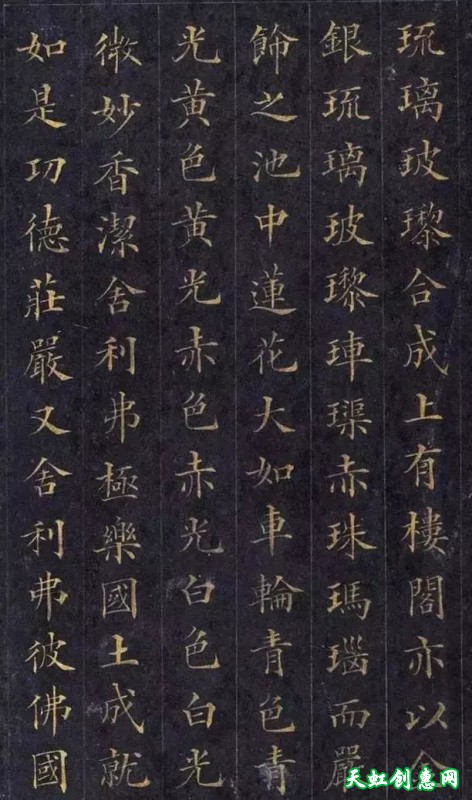 琉璃玻瓈合成上有樓閣亦以金
銀琉璃玻瓈車璖赤珠瑪瑙而嚴
飾之池中蓮花大如車輪青色青
光黄色黄光赤色赤光白色白光
微妙香潔舍利弗極樂國土成就
如是功德莊嚴又舍利弗彼佛國
天虹创意网